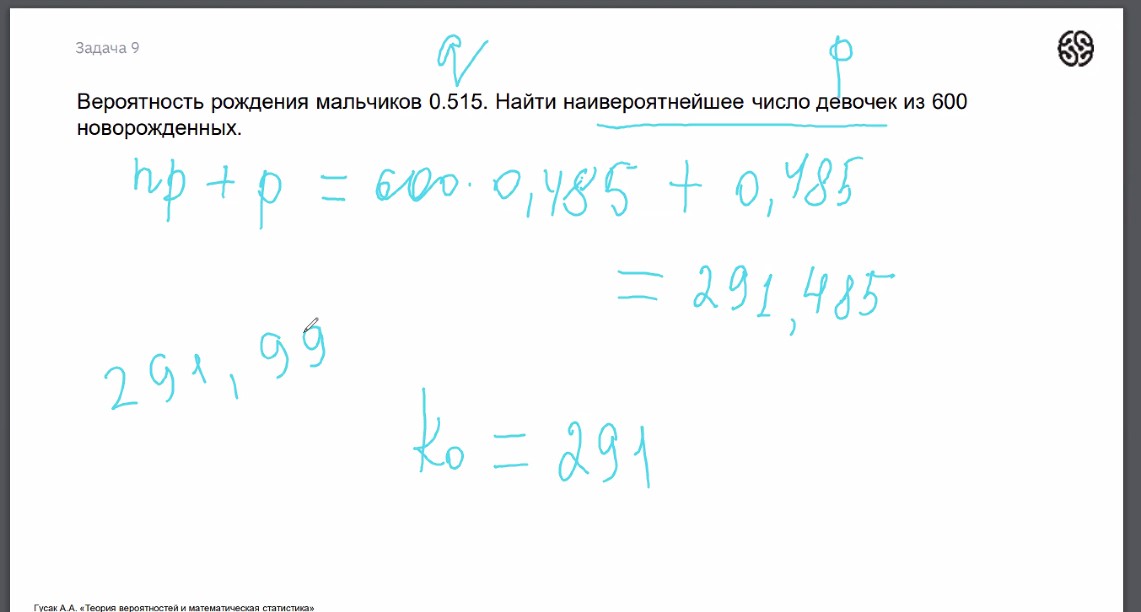 Задача 9
q p
Вероятность рождения мальчиков 0.515. Найти наивероятнейшее число девочек из 600
новорожденных.
np + p = 600 · 0,485 + 0,485
= 291,485
291,99
k₀ = 291
Гусак А.А. «Теория вероятностей и математическая статистика»